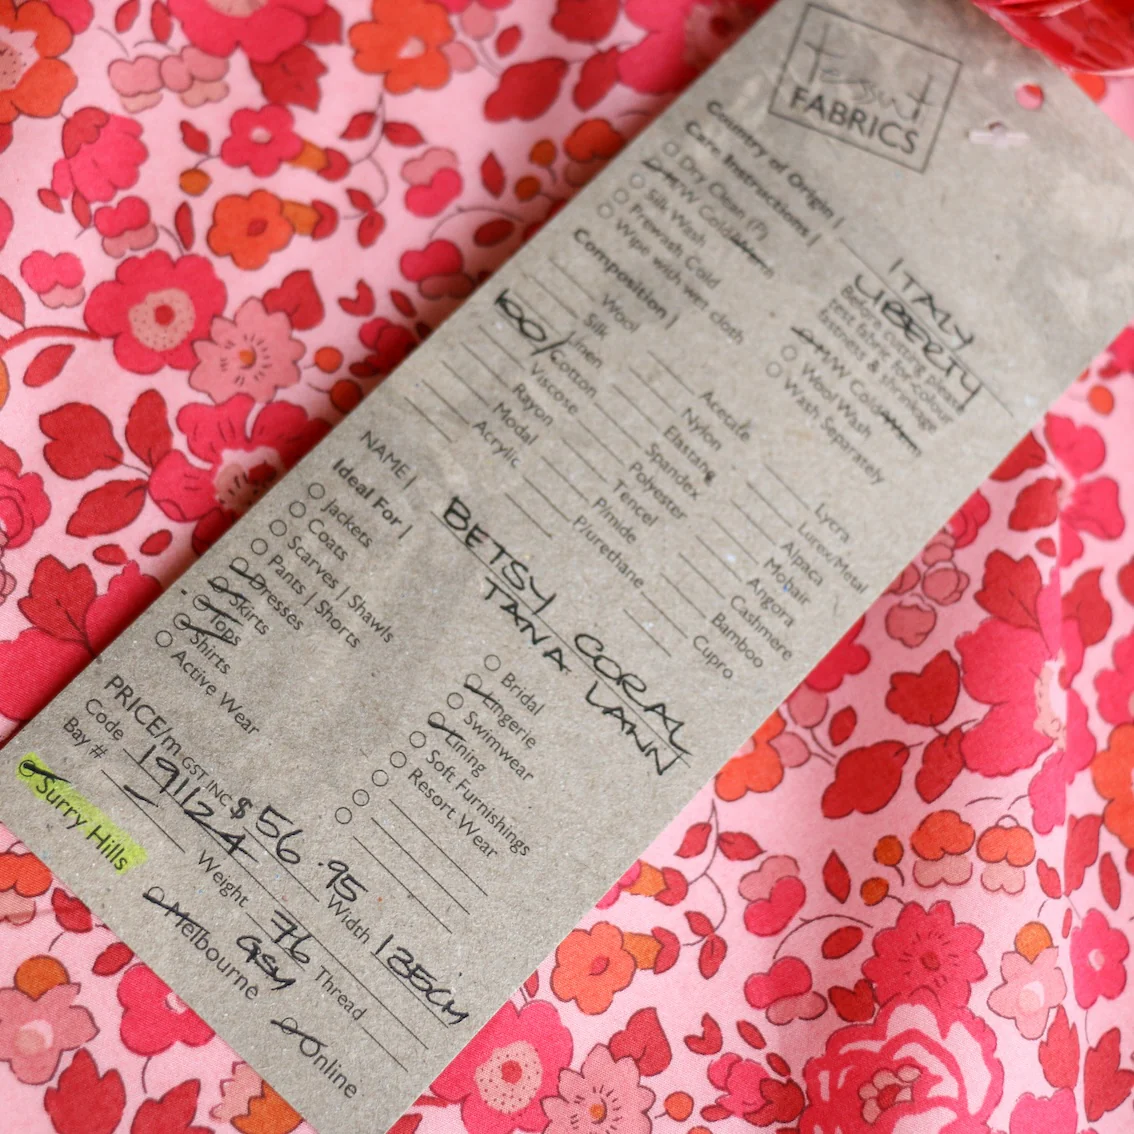 tessuti
FABRICS
Country of Origin | ITALY
LIBERTY
Care Instructions | Before cutting please
test fabric for colour
fastness & shrinkage
Dry Clean (P)
MW Cold/Warm
Silk Wash
Prewash Cold
Wipe with wet cloth
MW Cold/Warm
Wool Wash
Wash Separately
Composition |
Wool
Silk
Linen
100/ Cotton
Viscose
Rayon
Modal
Acrylic
Acetate
Nylon
Elastane
Spandex
Polyester
Tencel
P/mide
P/urethane
Lycra
Lurex/Metal
Alpaca
Mohair
Angora
Cashmere
Bamboo
Cupro
NAME | BETSY CORAL
TANA LAWN
Ideal For |
Jackets
Coats
Scarves | Shawls
Pants | Shorts
Dresses
Skirts
Tops
Shirts
Active Wear
Bridal
Lingerie
Swimwear
Lining
Soft Furnishings
Resort Wear
PRICE/m GST INC $56.95
Code 191124 Width 135cm
Bay # – Weight 76 GSM Thread
Surry Hills Melbourne Online